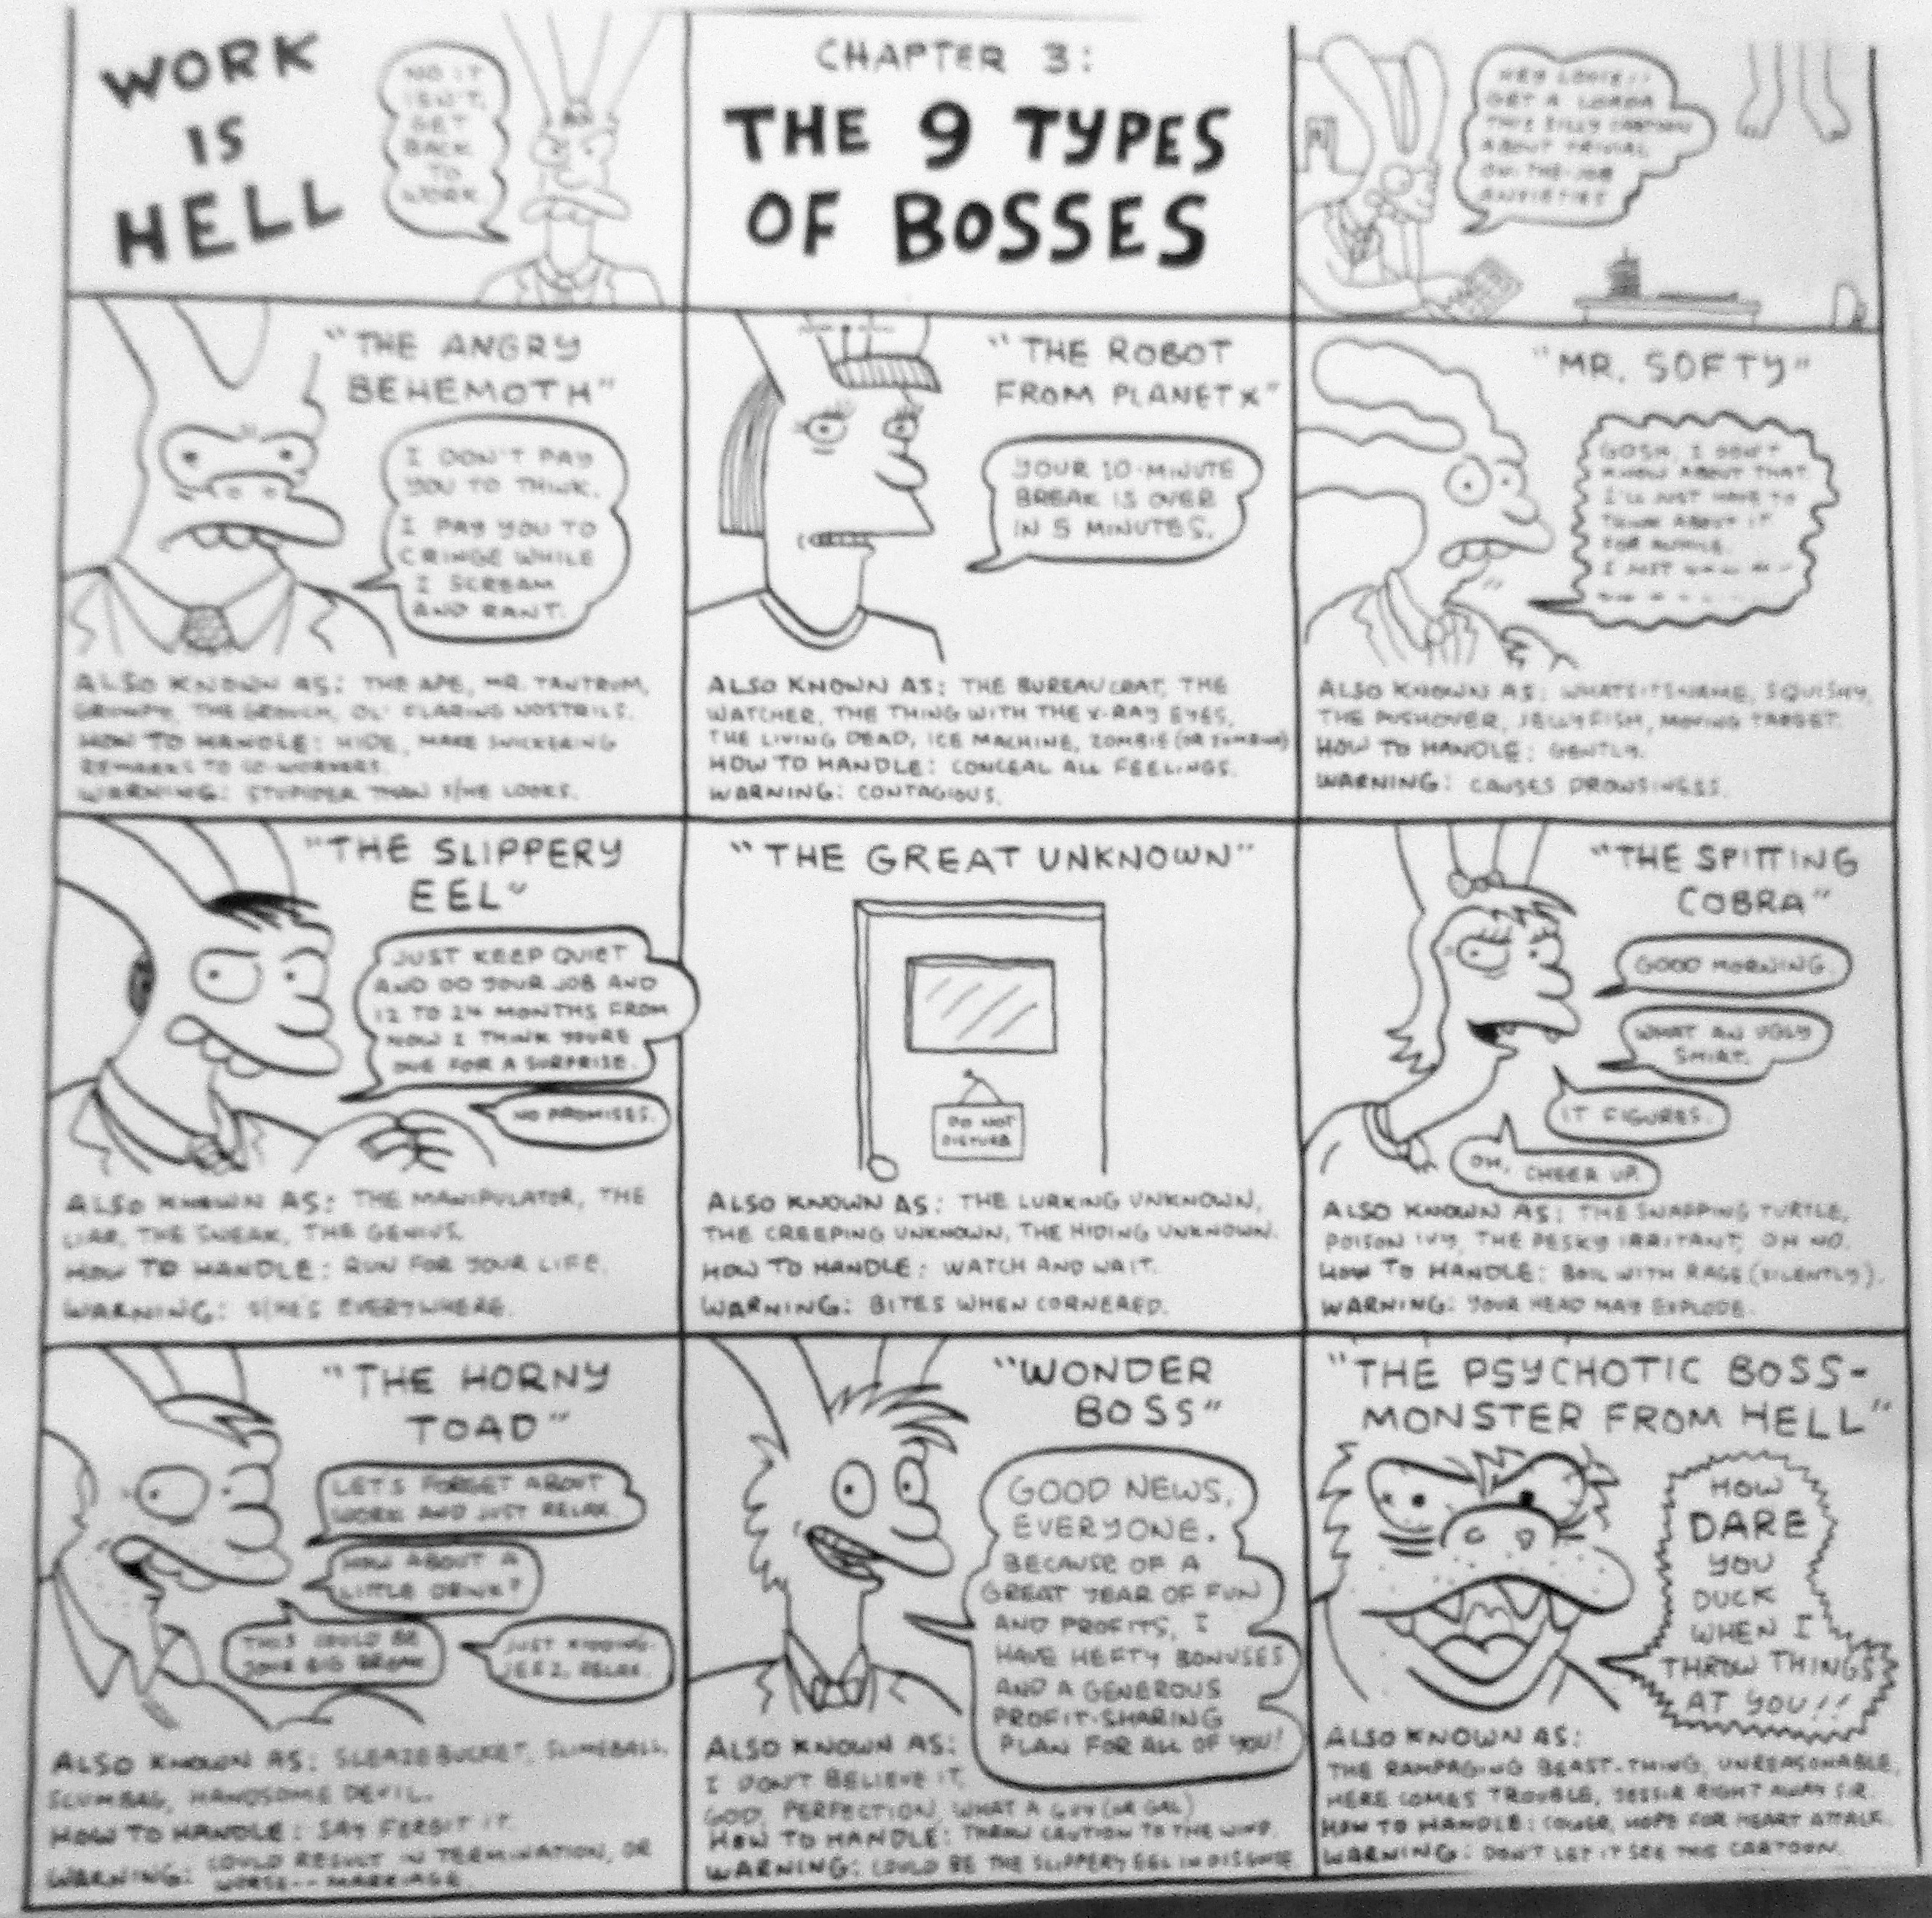 WORK
IS
HELL
NO IT
ISN'T.
GET
BACK
TO
WORK.
CHAPTER 3:
THE 9 TYPES
OF BOSSES
HEY LOUIE!!
GET A LOADA
THIS SILLY CARTOON
ABOUT TRIVIAL
ON-THE-JOB
ANXIETIES
"THE ANGRY
BEHEMOTH"
I DON'T PAY
YOU TO THINK.
I PAY YOU TO
CRINGE WHILE
I SCREAM
AND RANT.
ALSO KNOWN AS: THE APE, MR. TANTRUM,
GRUMPY, THE GROUCH, OL' FLARING NOSTRILS.
HOW TO HANDLE: HIDE, MAKE SNICKERING
REMARKS TO CO-WORKERS.
WARNING: STUPIDER THAN S/HE LOOKS.
"THE ROBOT
FROM PLANET X"
YOUR 10-MINUTE
BREAK IS OVER
IN 5 MINUTES.
ALSO KNOWN AS: THE BUREAUCRAT, THE
WATCHER, THE THING WITH THE X-RAY EYES,
THE LIVING DEAD, ICE MACHINE, ZOMBIE (OR ZOMBINA)
HOW TO HANDLE: CONCEAL ALL FEELINGS.
WARNING: CONTAGIOUS.
"MR. SOFTY"
GOSH, I DON'T
KNOW ABOUT THAT.
I'LL JUST HAVE TO
THINK ABOUT IT
FOR AWHILE.
I JUST
ALSO KNOWN AS: WHATSITSNAME, SQUISHY,
THE PUSHOVER, JELLYFISH, MOVING TARGET.
HOW TO HANDLE: GENTLY.
WARNING: CAUSES DROWSINESS.
"THE SLIPPERY
EEL"
JUST KEEP QUIET
AND DO YOUR JOB AND
12 TO 24 MONTHS FROM
NOW I THINK YOU'RE
DUE FOR A SURPRISE.
NO PROMISES.
ALSO KNOWN AS: THE MANIPULATOR, THE
LIAR, THE SNEAK, THE GENIUS.
HOW TO HANDLE: RUN FOR YOUR LIFE.
WARNING: S/HE'S EVERYWHERE.
"THE GREAT UNKNOWN"
DO NOT
DISTURB
ALSO KNOWN AS: THE LURKING UNKNOWN,
THE CREEPING UNKNOWN, THE HIDING UNKNOWN.
HOW TO HANDLE: WATCH AND WAIT.
WARNING: BITES WHEN CORNERED.
"THE SPITTING
COBRA"
GOOD MORNING.
WHAT AN UGLY
SHIRT.
IT FIGURES.
OH, CHEER UP.
ALSO KNOWN AS: THE SNAPPING TURTLE,
POISON IVY, THE PESKY IRRITANT, OH NO.
HOW TO HANDLE: BOIL WITH RAGE (SILENTLY).
WARNING: YOUR HEAD MAY EXPLODE.
"THE HORNY
TOAD"
LET'S FORGET ABOUT
WORK AND JUST RELAX.
HOW ABOUT A
LITTLE DRINK?
THIS COULD BE
YOUR BIG BREAK
JUST KIDDING.
JEEZ, RELAX.
ALSO KNOWN AS: SLEAZEBUCKET, SLIMEBALL,
SCUMBAG, HANDSOME DEVIL.
HOW TO HANDLE: SAY FERGIT IT.
WARNING: COULD RESULT IN TERMINATION, OR
WORSE-- MARRIAGE.
"WONDER
BOSS"
GOOD NEWS,
EVERYONE.
BECAUSE OF A
GREAT YEAR OF FUN
AND PROFITS, I
HAVE HEFTY BONUSES
AND A GENEROUS
PROFIT-SHARING
PLAN FOR ALL OF YOU!
ALSO KNOWN AS:
I DON'T BELIEVE IT,
GOD, PERFECTION, WHAT A GUY (OR GAL)
HOW TO HANDLE: THROW CAUTION TO THE WIND.
WARNING: COULD BE THE SLIPPERY EEL IN DISGUISE
"THE PSYCHOTIC BOSS-
MONSTER FROM HELL"
HOW
DARE
YOU
DUCK
WHEN I
THROW THINGS
AT YOU!!
ALSO KNOWN AS:
THE RAMPAGING BEAST-THING, UNREASONABLE,
HERE COMES TROUBLE, YESSIR RIGHT AWAY SIR.
HOW TO HANDLE: COWER, HOPE FOR HEART ATTACK.
WARNING: DON'T LET IT SEE THIS CARTOON.